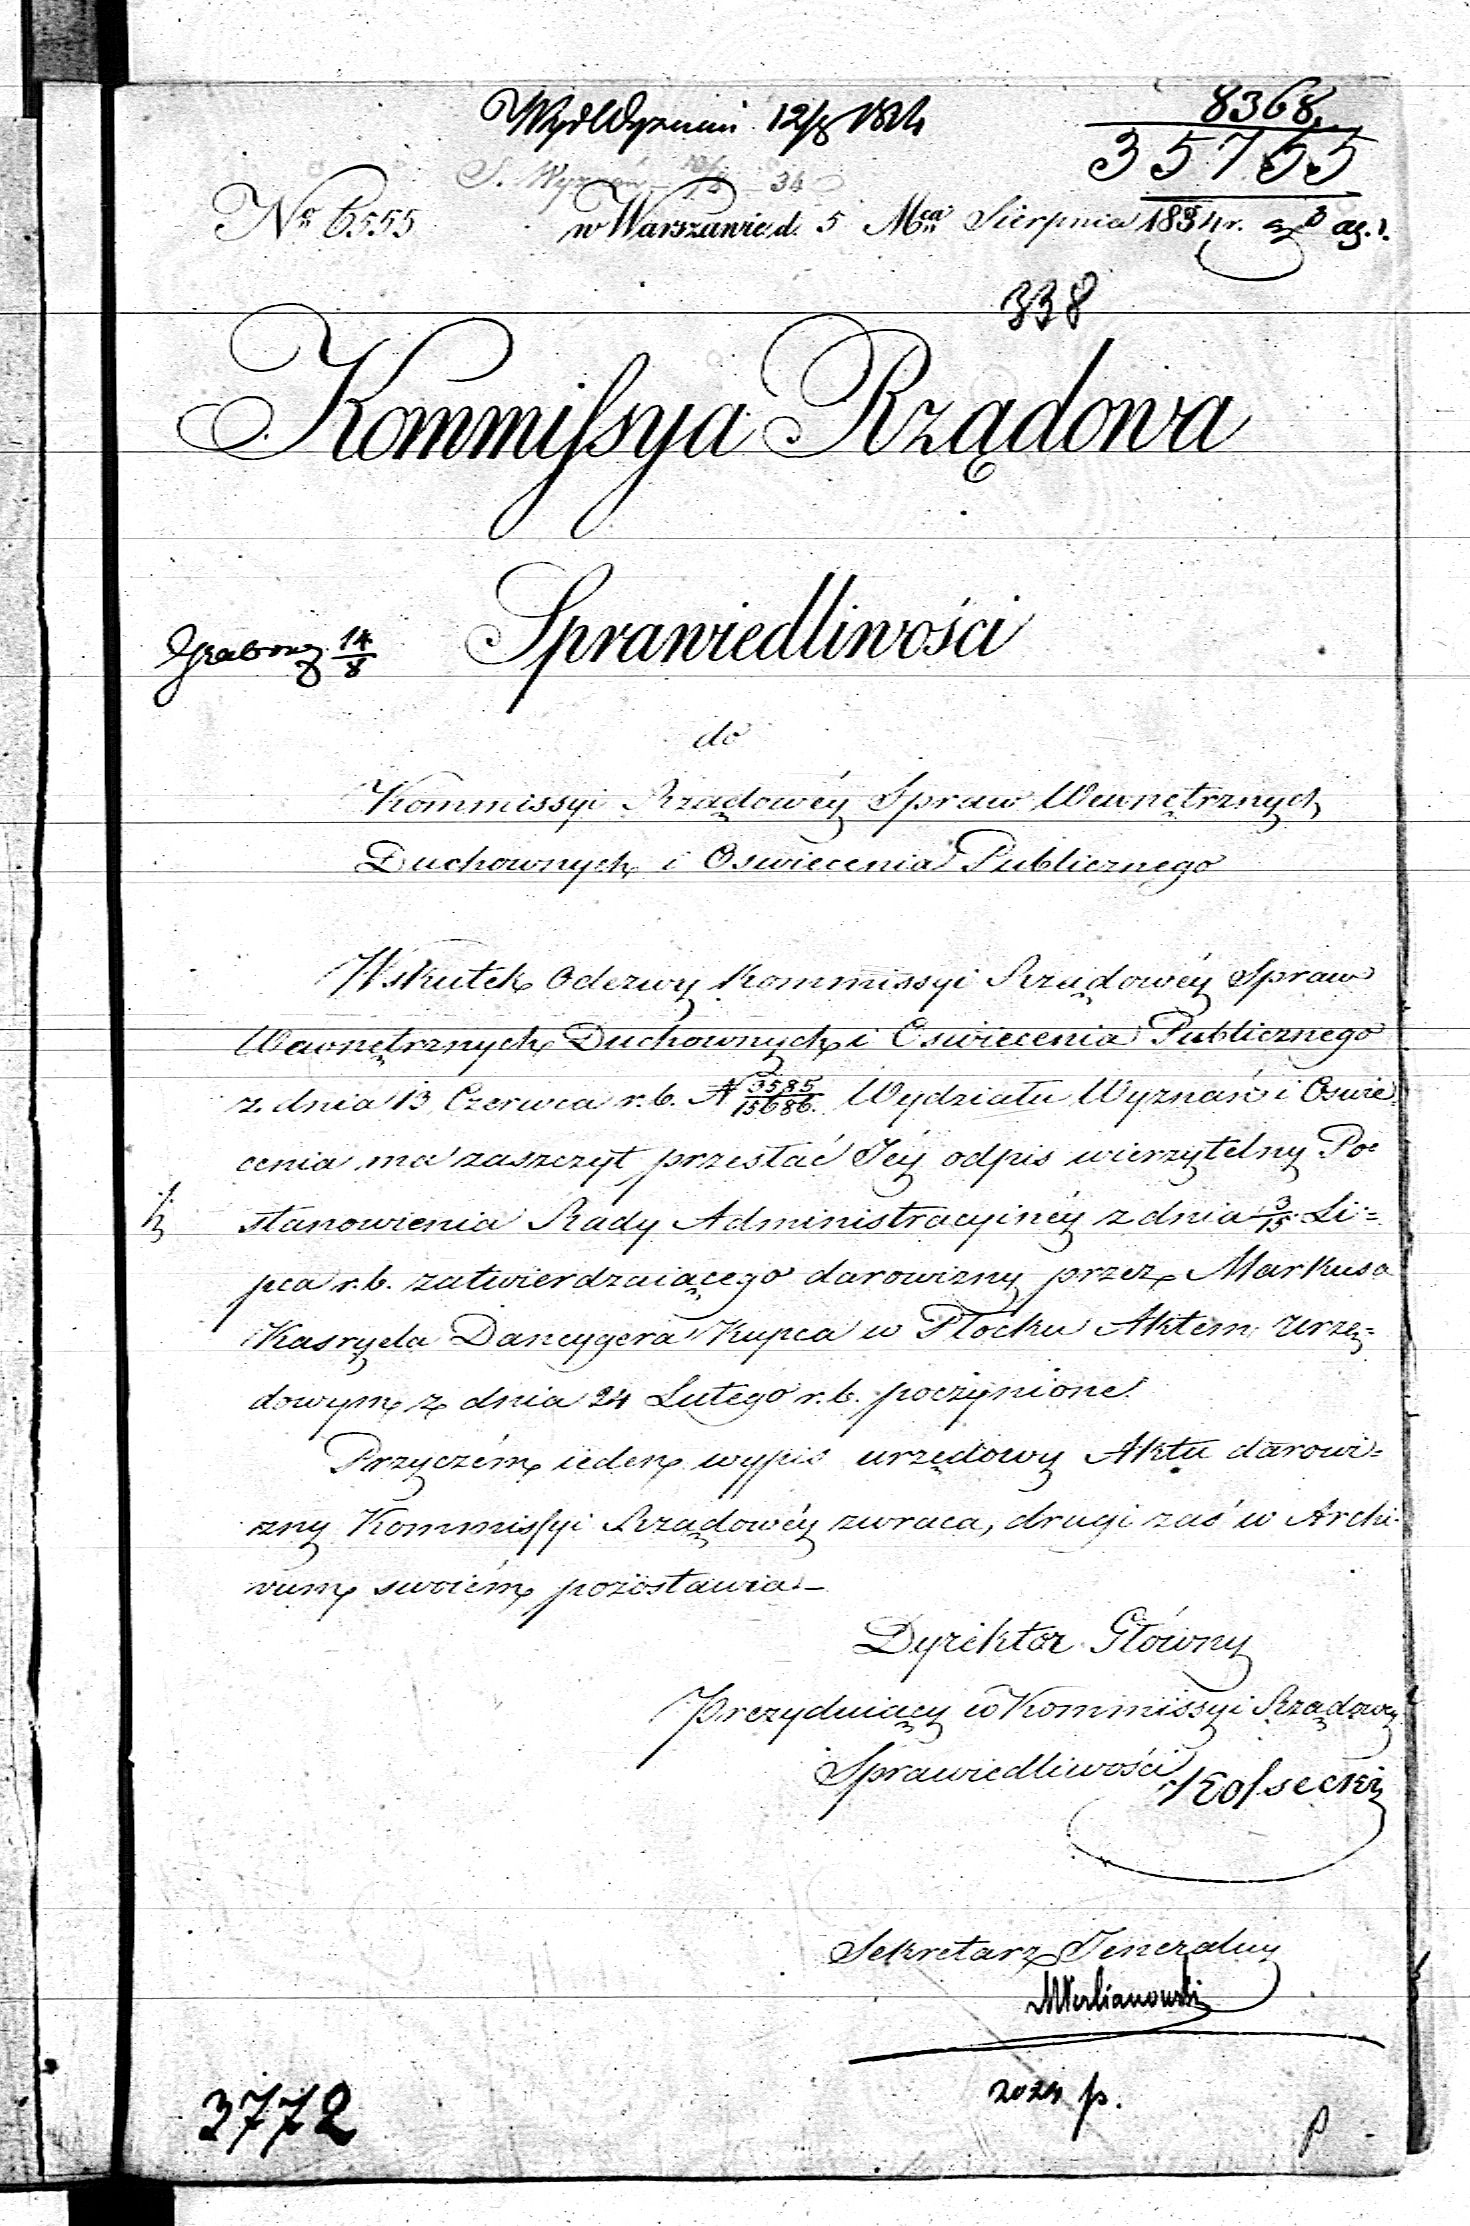 12/8 1834
8368.
35755
S. Wyznań 34
Nr 6555
w Warszawie d. 5 Mca Sierpnia 1834 r.
338
Kommissya Rządowa
14/8
Sprawiedliwości
do
Kommissyi Rządowéy Spraw Wewnętrznych
Duchownych i Oswiecenia Publicznego
Wskutek Odezwy Kommissyi Rządowéy Spraw
Wewnętrznych Duchownych i Oswiecenia Publicznego
z dnia 13 Czerwca r. b. N 3585/15686. Wydziału Wyznań i Oswie-
cenia ma zaszczyt przesłać Jéy odpis wierzytelny Po=
stanowienia Rady Administracyinéy z dnia 3/15 Li=
pca r. b. zatwierdzaiącego darowizny przez Markusa
Kasryela Dancygera Kupca w Płocku Aktem Urzę=
dowym z dnia 24 Lutego r. b. poczynione.
Przyczém ieden wypis urzędowy Aktu darowi=
zny Kommissyi Rządowéy zwraca, drugi zaś w Archi-
wum swoiém pozostawia.—
Dyrektor Główny
Prezyduiący w Kommissyi Rządowéy
Sprawiedliwości
Kossecki
Sekretarz Jeneralny
3772
p.